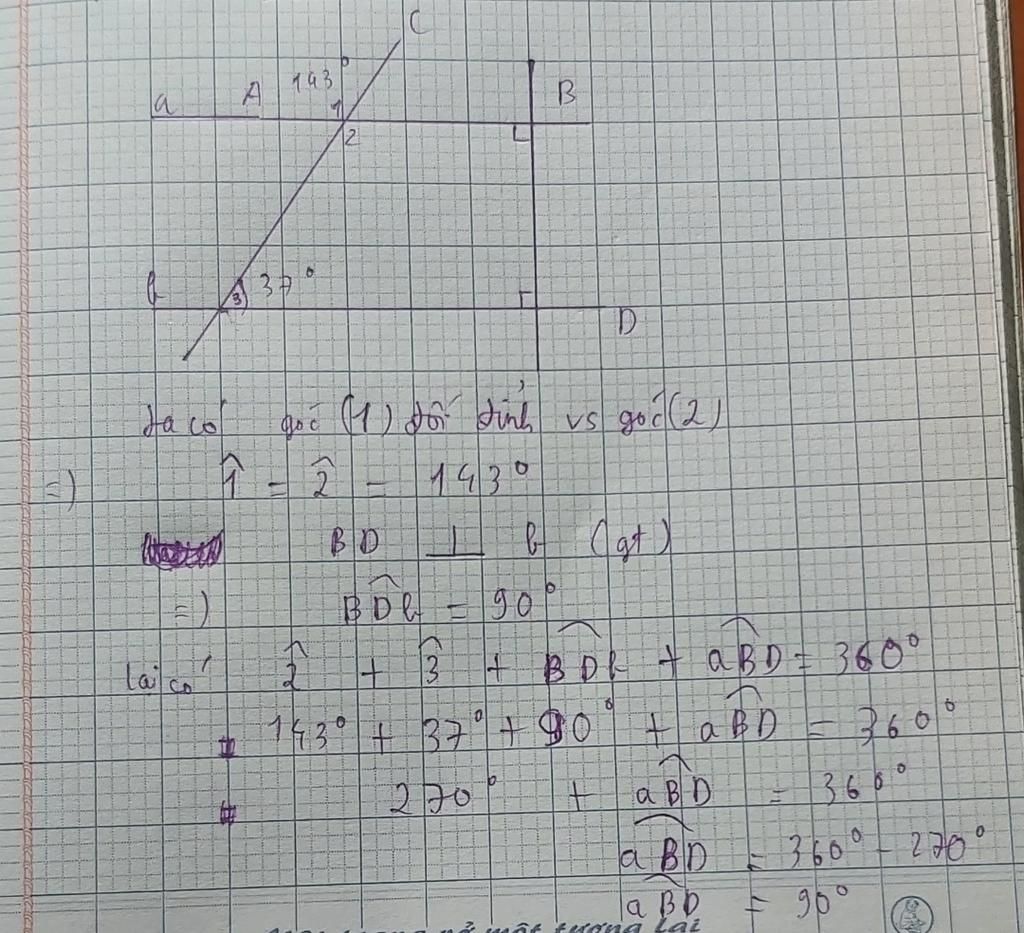 C
143°
a A 1 B
2
b 3 37°
D
ta có góc (1) đối đỉnh vs góc (2)
=) 1̂ = 2̂ = 143°
BD ⊥ b (gt)
=) BD̂b = 90°
lại có 2̂ + 3̂ + BD̂b + aB̂D = 360°
143° + 37° + 90° + aB̂D = 360°
270° + aB̂D = 360°
aB̂D = 360° - 270°
aB̂D = 90°
một tương lai